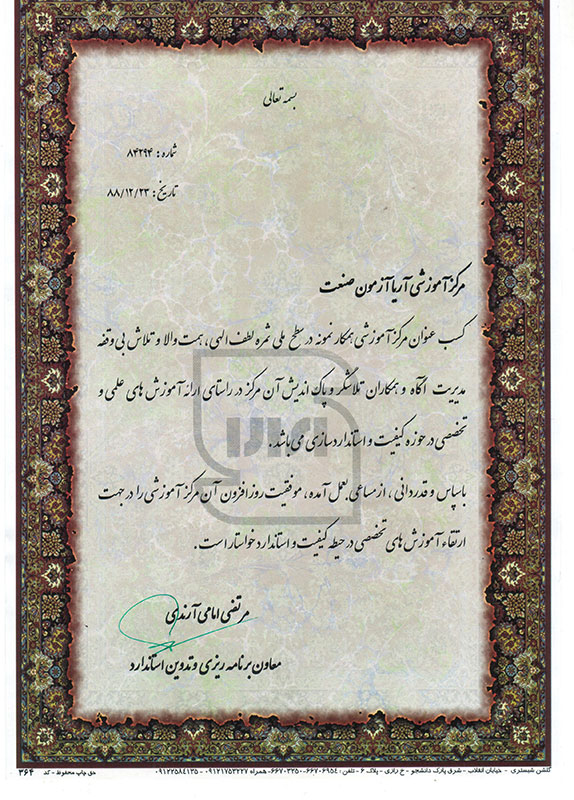 بسمه تعالی
شماره: ۸۴۲۹۴
تاریخ: ۸۸/۱۲/۲۳
مرکز آموزشی آریا آزمون صنعت
کسب عنوان مرکز آموزشی همکار نمونه در سطح ملی ثمره لطف الهی، همت والا و تلاش بی وقفه
مدیریت آگاه و همکاران تلاشگر و پاک اندیش آن مرکز در راستای ارائه آموزش های علمی و
تخصصی در حوزه کیفیت و استانداردسازی می باشد.
باسپاس و قدردانی، از مساعی بعمل آمده، موفقیت روز افزون آن مرکز آموزشی را در جهت
ارتقاء آموزش های تخصصی در حیطه کیفیت و استاندارد خواستار است.
مرتضی امامی آرندی
معاون برنامه ریزی و تدوین استاندارد
گلشن شبستری - خیابان انقلاب - شرق پارک دانشجو - خ رازی - پلاک ۶ - تلفن: ۶۶۷۰۶۹۵۴-۶۶۷۰۳۲۵۰ همراه ۰۹۱۲۱۷۵۳۲۲۷ - ۰۹۱۲۲۵۸۴۱۳۵
حق چاپ محفوظ - کد ۳۶۴